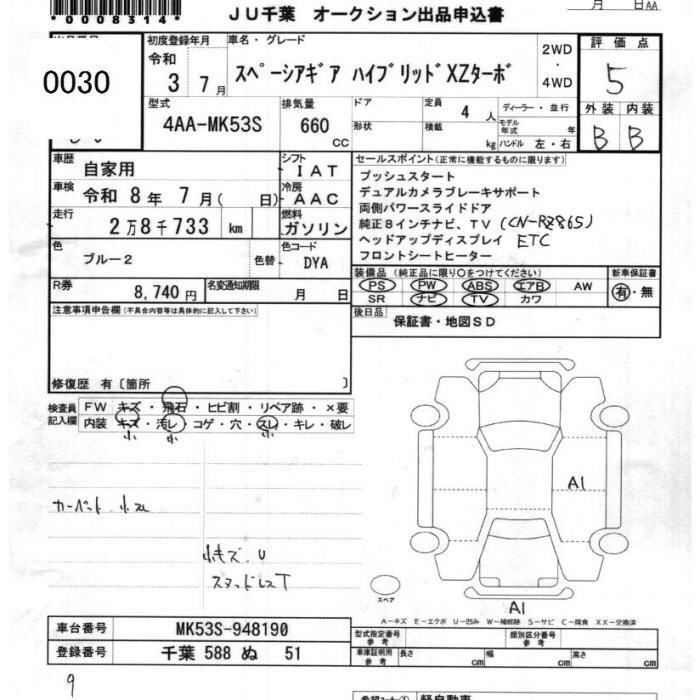 *0008314*
ＪＵ千葉 オークション出品申込書
月 日AA
0030
初度登録年月
令和
3 7月
車名・グレード
スペーシアギア ハイブリッドXZターボ
2WD
・
4WD
評価点
5
外装 内装
B B
型式
4AA-MK53S
排気量
660
CC
ドア
形状
定員
4 人
積載
kg
ディーラー・並行
モデル年式 年
ハンドル 左・右
車歴
自家用
シフト
IAT
車検
令和 8年 7月( 日)
冷房
AAC
走行
2万8千733 km
燃料
ガソリン
色
ブルー2
色替
色コード
DYA
R券
8,740円
名変通知期限
月 日
セールスポイント(正常に機能するものに限ります)
プッシュスタート
デュアルカメラブレーキサポート
両側パワースライドドア
純正8インチナビ、TV (CN-RZ865)
ヘッドアップディスプレイ ETC
フロントシートヒーター
装備品 (純正品に限り○をつけてください)
PS PW ABS エアB AW
SR ナビ TV カワ
新車保証書
有・無
後日品
保証書・地図SD
注意事項申告欄(不具合内容等は具体的に記入して下さい)
修復歴 有〔箇所 〕
検査員
記入欄
FW キズ・飛石・ヒビ割・リペア跡・×要
内装 キズ・汚レ・コゲ・穴・スレ・キレ・破レ
小 小
カーペット 小スレ
小キズ、U
A1
A1
スペア
A－キズ E－エクボ U－凹み W－補修跡 S－サビ C－腐食 XX－交換済
車台番号 MK53S-948190
登録番号 千葉 588 ぬ 51
型式指定番号
参考
類別区分番号
参考
車庫証明用
参考
長さ cm 幅 cm 高さ cm
9
軽自動車